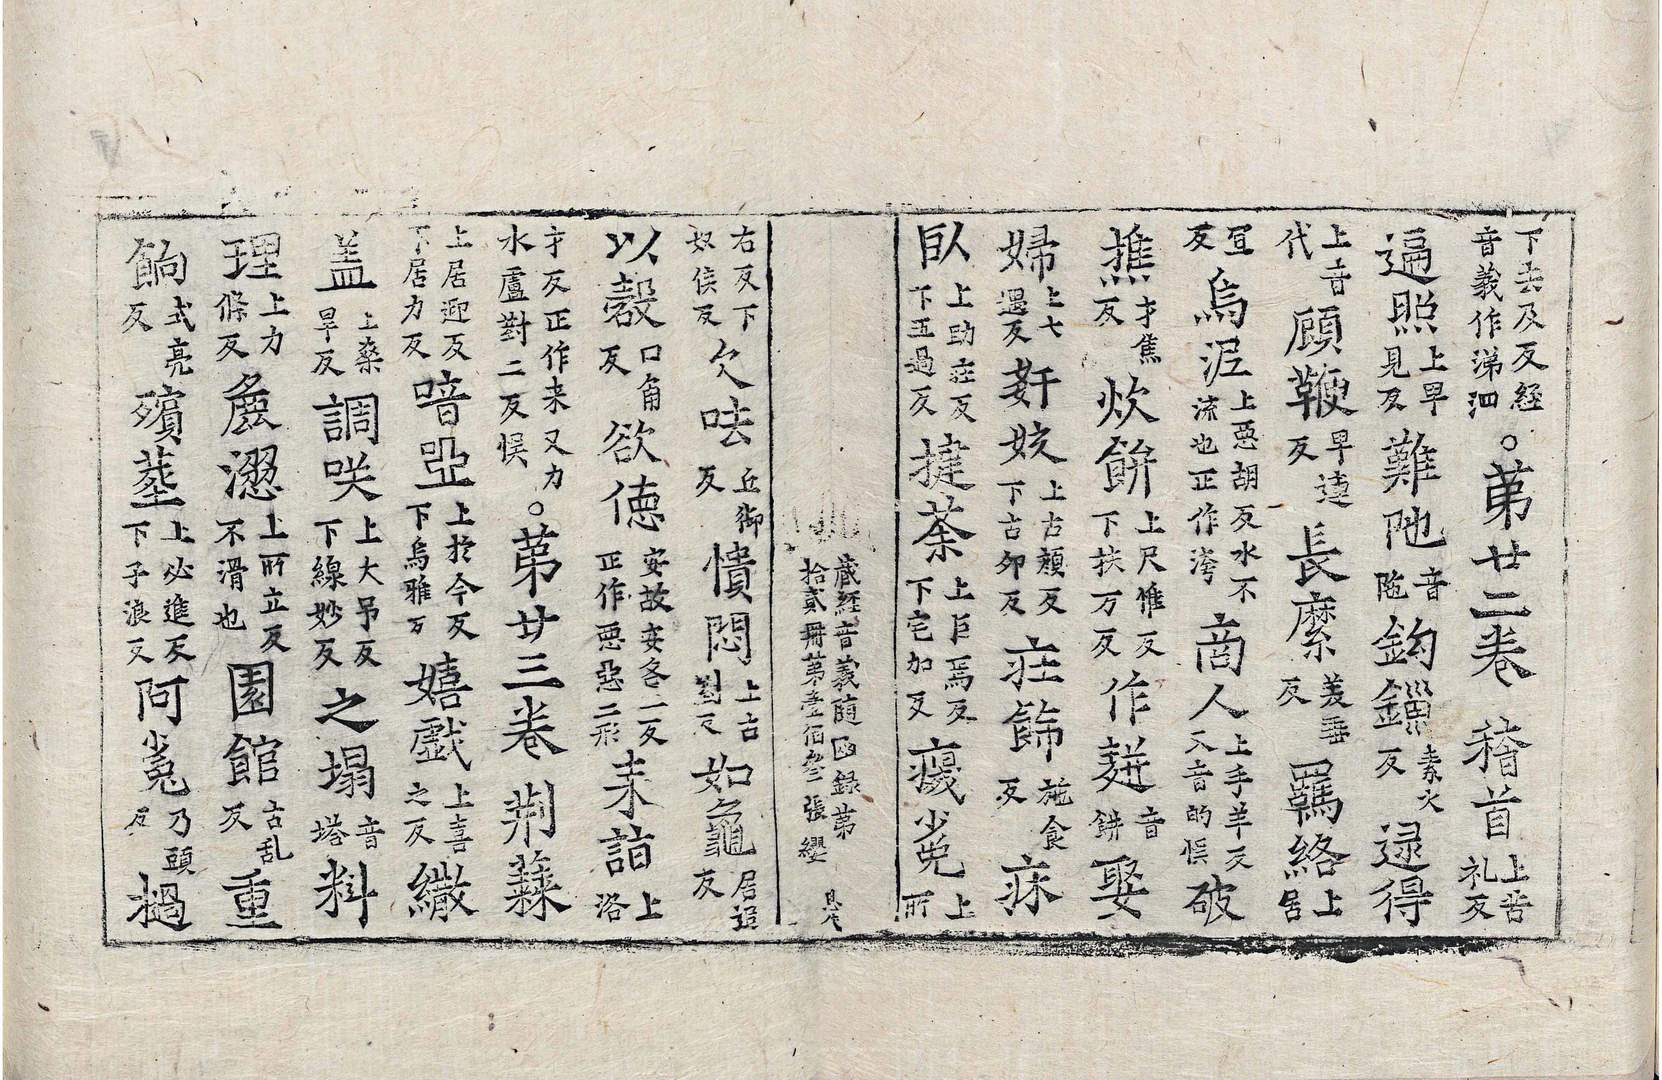 下去及反経音義作涕泗。苐廿二卷 稽首上苦礼反
遍照上早見反難陁音陁鈎鎦素火反逯得
上音代顧鞭早連反長縻美垂反羈絡上居
冝反烏泥上惡胡反水不流也正作洿商人上手羊反又音的悮破
撨才焦反炊餅上尺惟反下扶万反作麨音餅娶
婦上七遇反姧姣上古顔反下古夘反莊飾施食反床
臥上助莊反下五過反揵荼上巨焉反下宅加反𤸪㝹上所
藏経音義随函録苐拾貳冊苐壹伯叁張纓
右反下奴侯反欠呿丘御反憒悶上古對反如龜居追反
以㲉口角反欲徳安故安各二反正作惡惡二形耒詣上洛
才反正作来又力水盧對二反悮。苐廿三卷 荆蕀
上居迎反下居力反喑啞上於今反下烏雅反嬉戯上喜之反繖
盖上桒旱反調咲上大吊反下線妙反之塌音塔料
理上力條反麁澀上所立反不滑也園館古乱反重
餉式亮反殯𦵏上必進反下子浪反阿㝹乃頭反撾